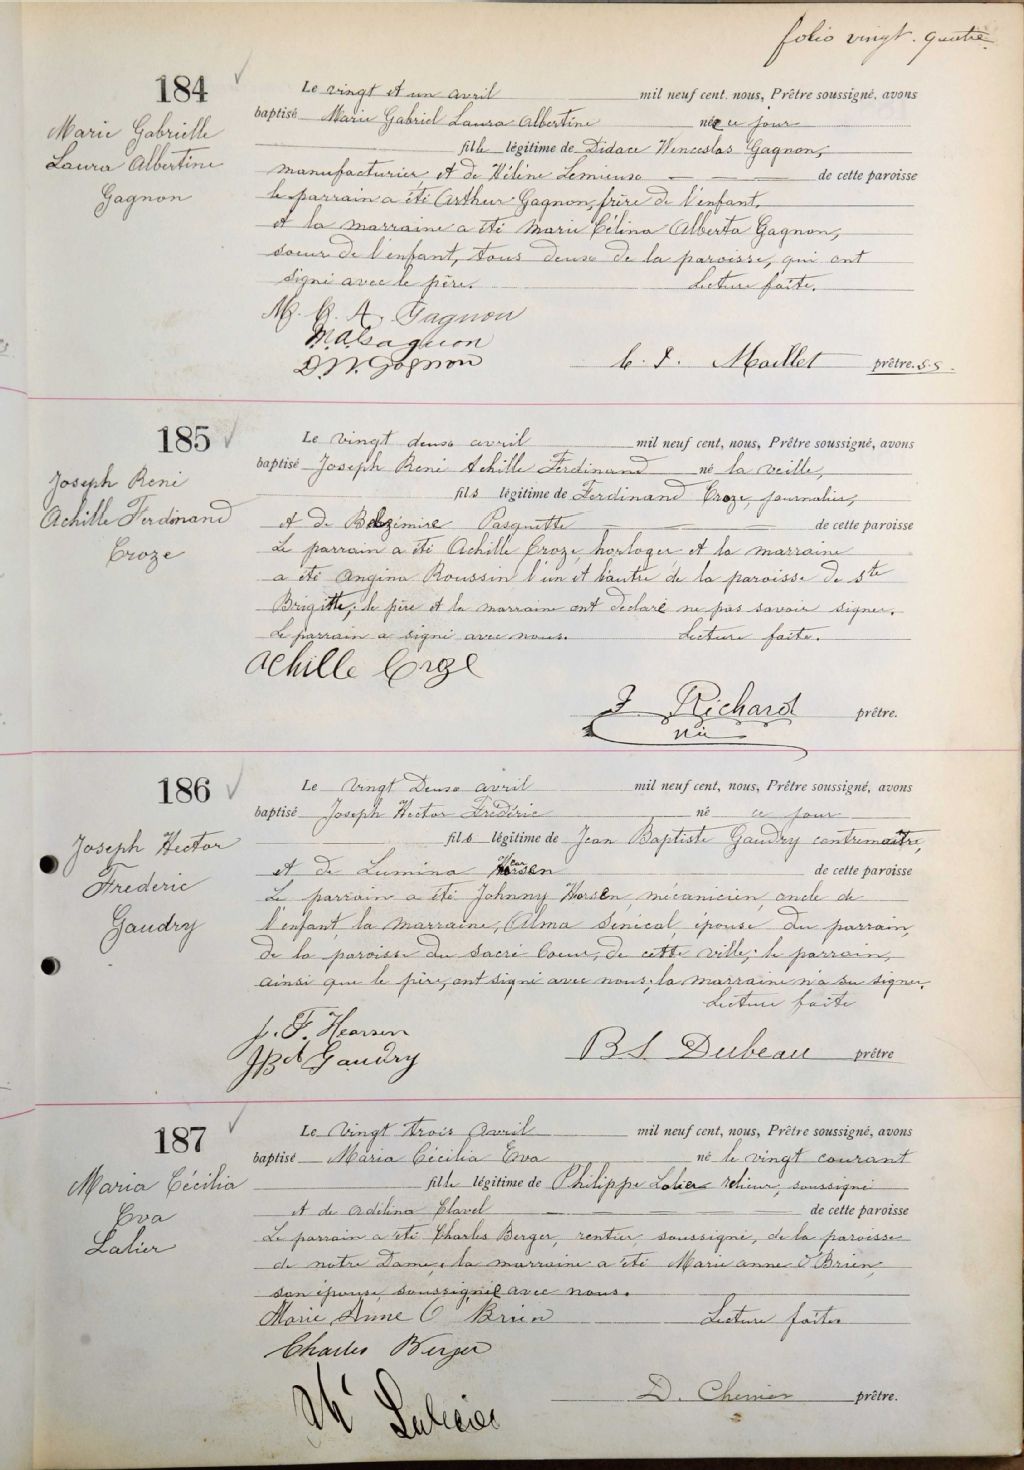 folio vingt-quatre
184
Marie Gabrielle
Laura Albertine
Gagnon
Le vingt et un avril mil neuf cent, nous, Prêtre soussigné, avons
baptisé Marie Gabriel Laura Albertine née ce jour
fille légitime de Didace Wenceslas Gagnon,
manufacturier et de Hélène Lemieux — — — de cette paroisse
le parrain a été Arthur Gagnon, frère de l'enfant.
et la marraine a été Marie Célina Alberta Gagnon,
soeur de l'enfant, tous deux de la paroisse, qui ont
signé avec le père. Lecture faite.
A. Gagnon
M. A. Gagnon
D. W. Gagnon
Maillet prêtre. s.s.
185
Joseph René
Achille Ferdinand
Croze
Le vingt deux avril mil neuf cent, nous, Prêtre soussigné, avons
baptisé Joseph René Achille Ferdinand né la veille,
fils légitime de Ferdinand Croze, journalier,
et de Belzémire Pasquette — — — de cette paroisse
Le parrain a été Achille Croze, horloger et la marraine
a été Angina Roussin l'un et l'autre de la paroisse de Ste
Brigitte; le père et la marraine ont déclaré ne pas savoir signer.
Le parrain a signé avec nous. Lecture faite.
Achille Croze
J. Richard prêtre.
vic
186
Joseph Hector
Frederic
Gaudry
Le vingt Deux avril mil neuf cent, nous, Prêtre soussigné, avons
baptisé Joseph Hector Frédéric né ce jour
fils légitime de Jean Baptiste Gaudry contremaître,
et de Lumina de cette paroisse
Le parrain a été Johnny Horsen, mécanicien, oncle de
l'enfant, la marraine, Alma Sénécal, épouse du parrain,
de la paroisse du Sacré Coeur, de cette ville; le parrain,
ainsi que le père, ont signé avec nous; la marraine n'a su signer.
Lecture faite
J. F. Hearsen
J Bt Gaudry
B S Dubeau prêtre
187
Maria Cécilia
Eva
Lalier
Le vingt trois avril mil neuf cent, nous, Prêtre soussigné, avons
baptisé Maria Cécilia Eva né le vingt courant
fille légitime de Philippe Lalier relieur, soussigné
et de Adélina Clavel — — — de cette paroisse
Le parrain a été Charles Berger, rentier, soussigné, de la paroisse
de notre Dame, la marraine a été Marie anne O'Brien,
son épouse, soussignée avec nous.
Marie Anne O'Brien Lecture faite
Charles Berger
D. Chenier prêtre.